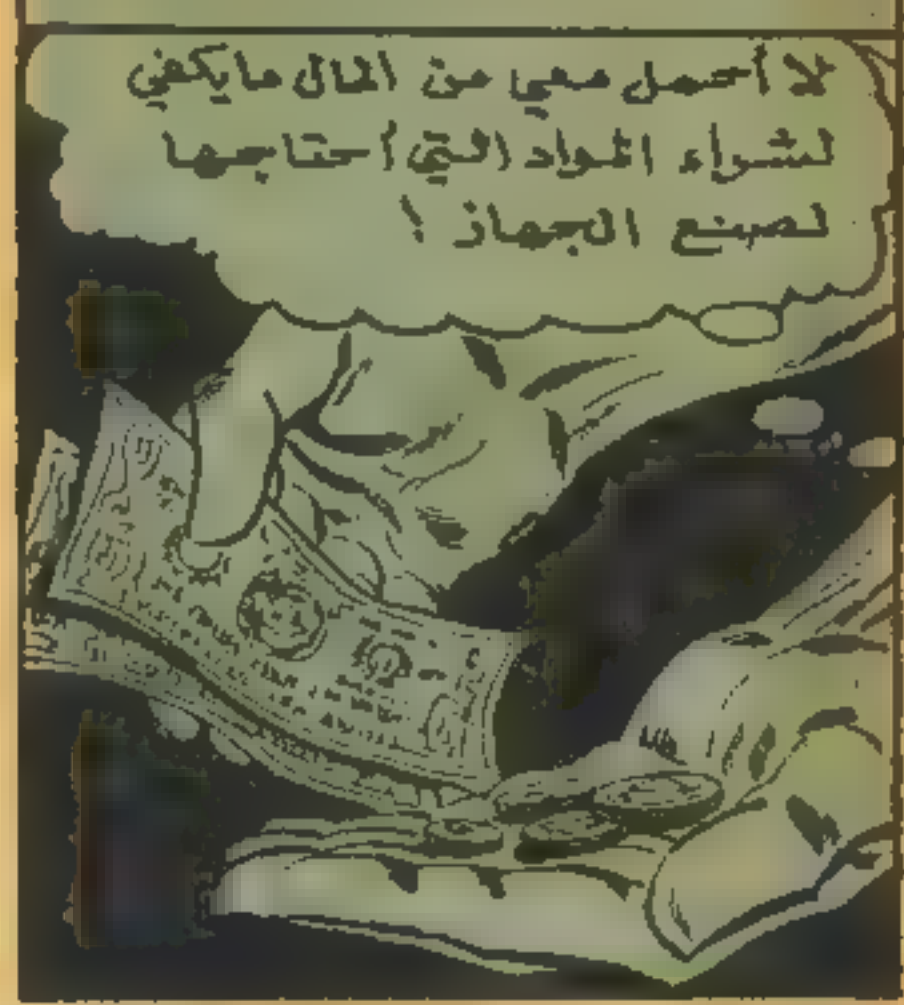 لا أحمل معي من المال مايكفي
لشراء المواد التي أحتاجها
لصنع الجهاز !